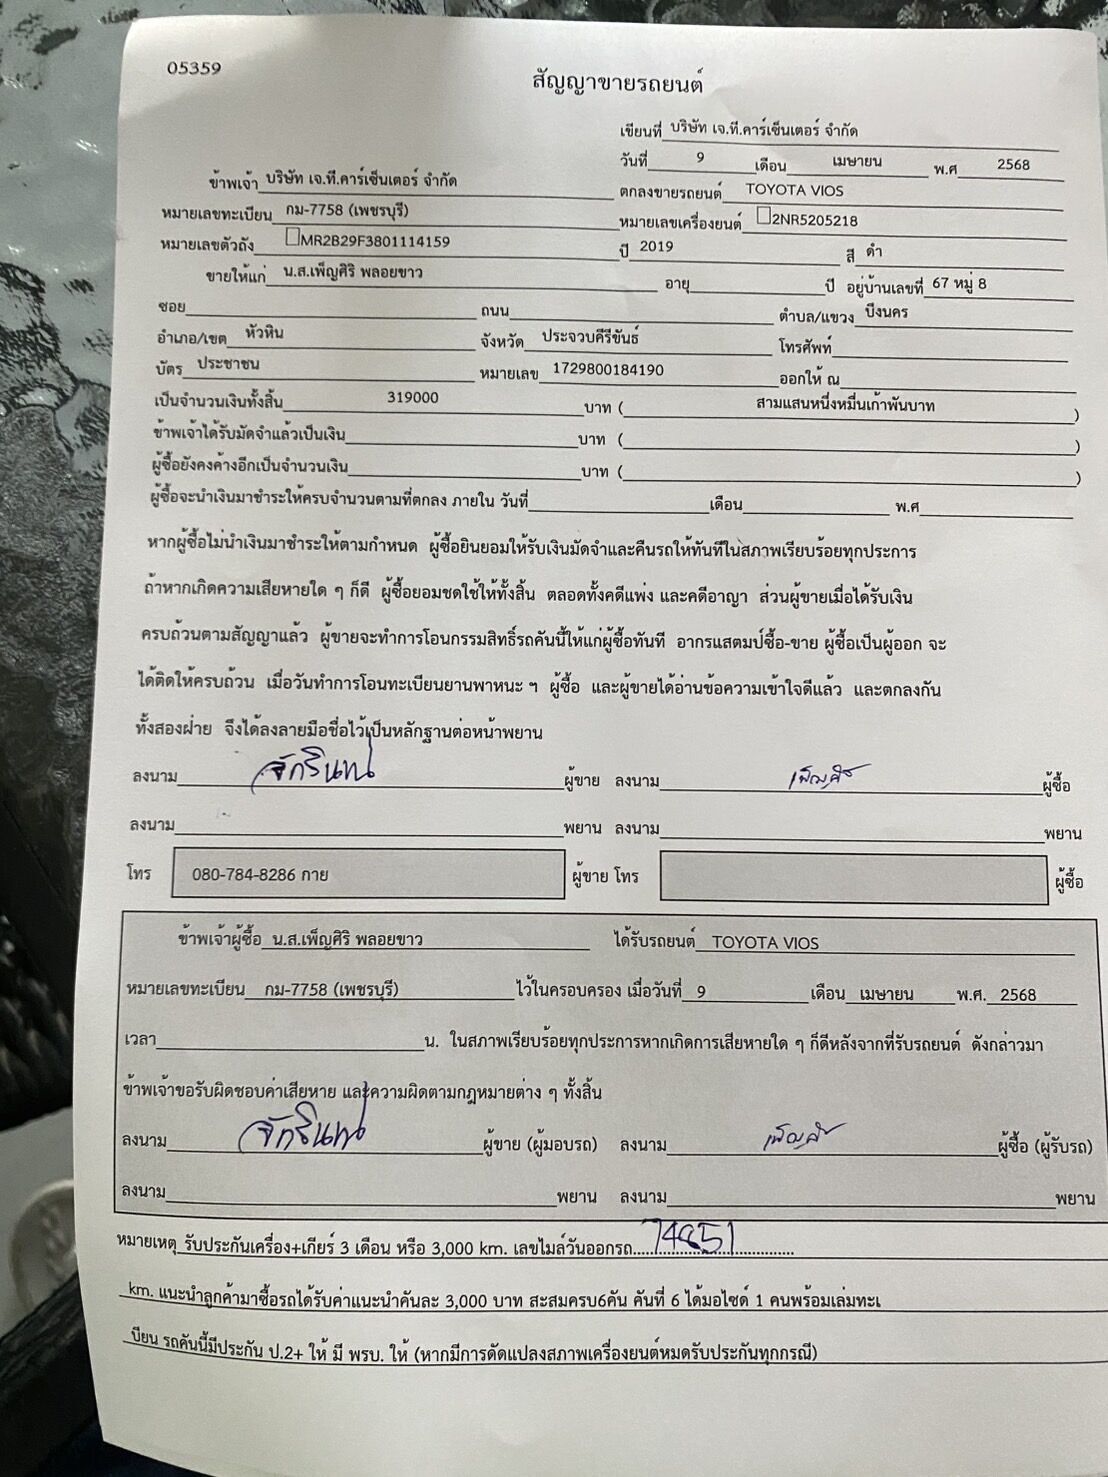 05359
สัญญาขายรถยนต์
เขียนที่ บริษัท เจ.ที.คาร์เซ็นเตอร์ จำกัด
วันที่ 9 เดือน เมษายน พ.ศ 2568
ข้าพเจ้า บริษัท เจ.ที.คาร์เซ็นเตอร์ จำกัด ตกลงขายรถยนต์ TOYOTA VIOS
หมายเลขทะเบียน กม-7758 (เพชรบุรี) หมายเลขเครื่องยนต์ 2NR5205218
หมายเลขตัวถัง MR2B29F3801114159 ปี 2019 สี ดำ
ขายให้แก่ น.ส.เพ็ญศิริ พลอยขาว อายุ ปี อยู่บ้านเลขที่ 67 หมู่ 8
ซอย ถนน ตำบล/แขวง บึงนคร
อำเภอ/เขต หัวหิน จังหวัด ประจวบคีรีขันธ์ โทรศัพท์
บัตร ประชาชน หมายเลข 1729800184190 ออกให้ ณ
เป็นจำนวนเงินทั้งสิ้น 319000 บาท ( สามแสนหนึ่งหมื่นเก้าพันบาท )
ข้าพเจ้าได้รับมัดจำแล้วเป็นเงิน บาท ( )
ผู้ซื้อยังคงค้างอีกเป็นจำนวนเงิน บาท ( )
ผู้ซื้อจะนำเงินมาชำระให้ครบจำนวนตามที่ตกลง ภายใน วันที่ เดือน พ.ศ
หากผู้ซื้อไม่นำเงินมาชำระให้ตามกำหนด ผู้ซื้อยินยอมให้รับเงินมัดจำและคืนรถให้ทันทีในสภาพเรียบร้อยทุกประการ
ถ้าหากเกิดความเสียหายใด ๆ ก็ดี ผู้ซื้อยอมชดใช้ให้ทั้งสิ้น ตลอดทั้งคดีแพ่ง และคดีอาญา ส่วนผู้ขายเมื่อได้รับเงิน
ครบถ้วนตามสัญญาแล้ว ผู้ขายจะทำการโอนกรรมสิทธิ์รถคันนี้ให้แก่ผู้ซื้อทันที อากรแสตมป์ซื้อ-ขาย ผู้ซื้อเป็นผู้ออก จะ
ได้ติดให้ครบถ้วน เมื่อวันทำการโอนทะเบียนยานพาหนะ ฯ ผู้ซื้อ และผู้ขายได้อ่านข้อความเข้าใจดีแล้ว และตกลงกัน
ทั้งสองฝ่าย จึงได้ลงลายมือชื่อไว้เป็นหลักฐานต่อหน้าพยาน
ลงนาม จักรินทน์ ผู้ขาย ลงนาม เพ็ญศิริ ผู้ซื้อ
ลงนาม พยาน ลงนาม พยาน
โทร 080-784-8286 กาย ผู้ขาย โทร ผู้ซื้อ
ข้าพเจ้าผู้ซื้อ น.ส.เพ็ญศิริ พลอยขาว ได้รับรถยนต์ TOYOTA VIOS
หมายเลขทะเบียน กม-7758 (เพชรบุรี) ไว้ในครอบครอง เมื่อวันที่ 9 เดือน เมษายน พ.ศ. 2568
เวลา น. ในสภาพเรียบร้อยทุกประการหากเกิดการเสียหายใด ๆ ก็ดีหลังจากที่รับรถยนต์ ดังกล่าวมา
ข้าพเจ้าขอรับผิดชอบค่าเสียหาย และความผิดตามกฎหมายต่าง ๆ ทั้งสิ้น
ลงนาม จักรินทน์ ผู้ขาย (ผู้มอบรถ) ลงนาม เพ็ญศิริ ผู้ซื้อ (ผู้รับรถ)
ลงนาม พยาน ลงนาม พยาน
หมายเหตุ รับประกันเครื่อง+เกียร์ 3 เดือน หรือ 3,000 km. เลขไมล์วันออกรถ
km. แนะนำลูกค้ามาซื้อรถได้รับค่าแนะนำคันละ 3,000 บาท สะสมครบ6คัน คันที่ 6 ได้มอไซด์ 1 คนพร้อมเล่มทะเ
บียน รถคันนี้มีประกัน ป.2+ ให้ มี พรบ. ให้ (หากมีการดัดแปลงสภาพเครื่องยนต์หมดรับประกันทุกกรณี)